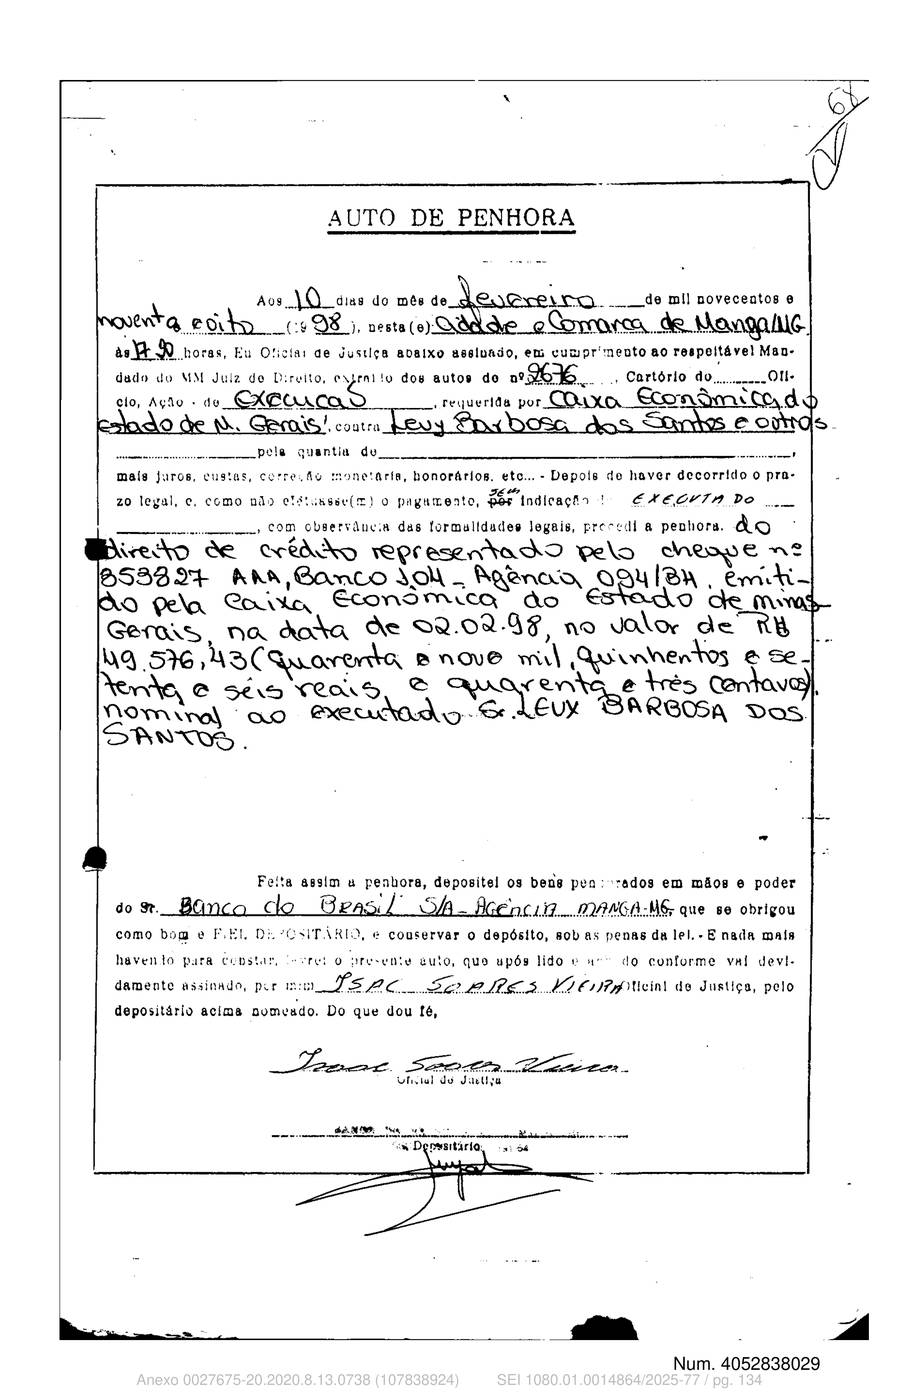 68
AUTO DE PENHORA
Aos 10 dias do mês de fevereiro de mil novecentos e
noventa e oito (1998), nesta(e) cidade e Comarca de Manga/MG
às horas, Eu Oficial de Justiça abaixo assinado, em cumprimento ao respeitável Man-
dado do MM Juiz de Direito, extraído dos autos de nº 2676, Cartório do Ofí-
cio, Ação - de Execucao, requerida por Caixa Econômica do
Estado de M. Gerais, contra Levy Barbosa dos Santos e outros
pela quantia de ,
mais juros, custas, correção monetária, honorários, etc... - Depois de haver decorrido o pra-
zo legal, e, como não efetuasse(m) o pagamento, por sem indicação EXECUTADO
, com observância das formalidades legais, procedi a penhora. do
direito de crédito representado pelo cheque nº
853827 AAA, Banco 104 - Agência 094/BH, emiti-
do pela Caixa Econômica do Estado de Minas
Gerais, na data de 02.02.98, no valor de R$
49.576,43 (Quarenta e nove mil, quinhentos e se-
tenta e seis reais, e quarenta e três centavos),
nominal ao executado Sr. LEUX BARBOSA DOS
SANTOS.
Feita assim a penhora, depositei os bens penhorados em mãos e poder
do Sr. Banco do BRASIL S/A - AGENCIA MANGA-MG, que se obrigou
como bom e FIEL DEPOSITÁRIO, e conservar o depósito, sob as penas da lei. - E nada mais
havento para constar, lavrei o presente auto, que após lido e achado conforme vai devi-
damente assinado, por mim ISAC SOARES VIEIRA Oficial de Justiça, pelo
depositário acima nomeado. Do que dou fé,
Isaac Soares Vieira
Oficial de Justiça
Depositário
Num. 4052838029
Anexo 0027675-20.2020.8.13.0738 (107838924) SEI 1080.01.0014864/2025-77 / pg. 134